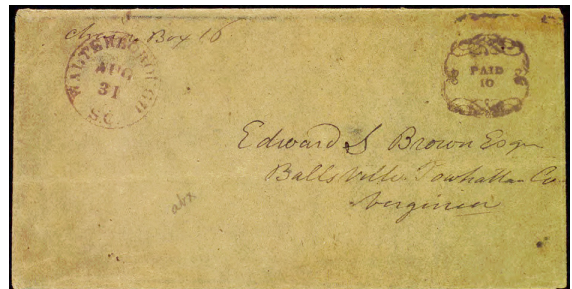 Charge Box 16
WALTERBOROUGH
AUG
31
S.C.
PAID
10
Edward S Brown Esqr
Ballsville Powhattan Co
Virginia
abx